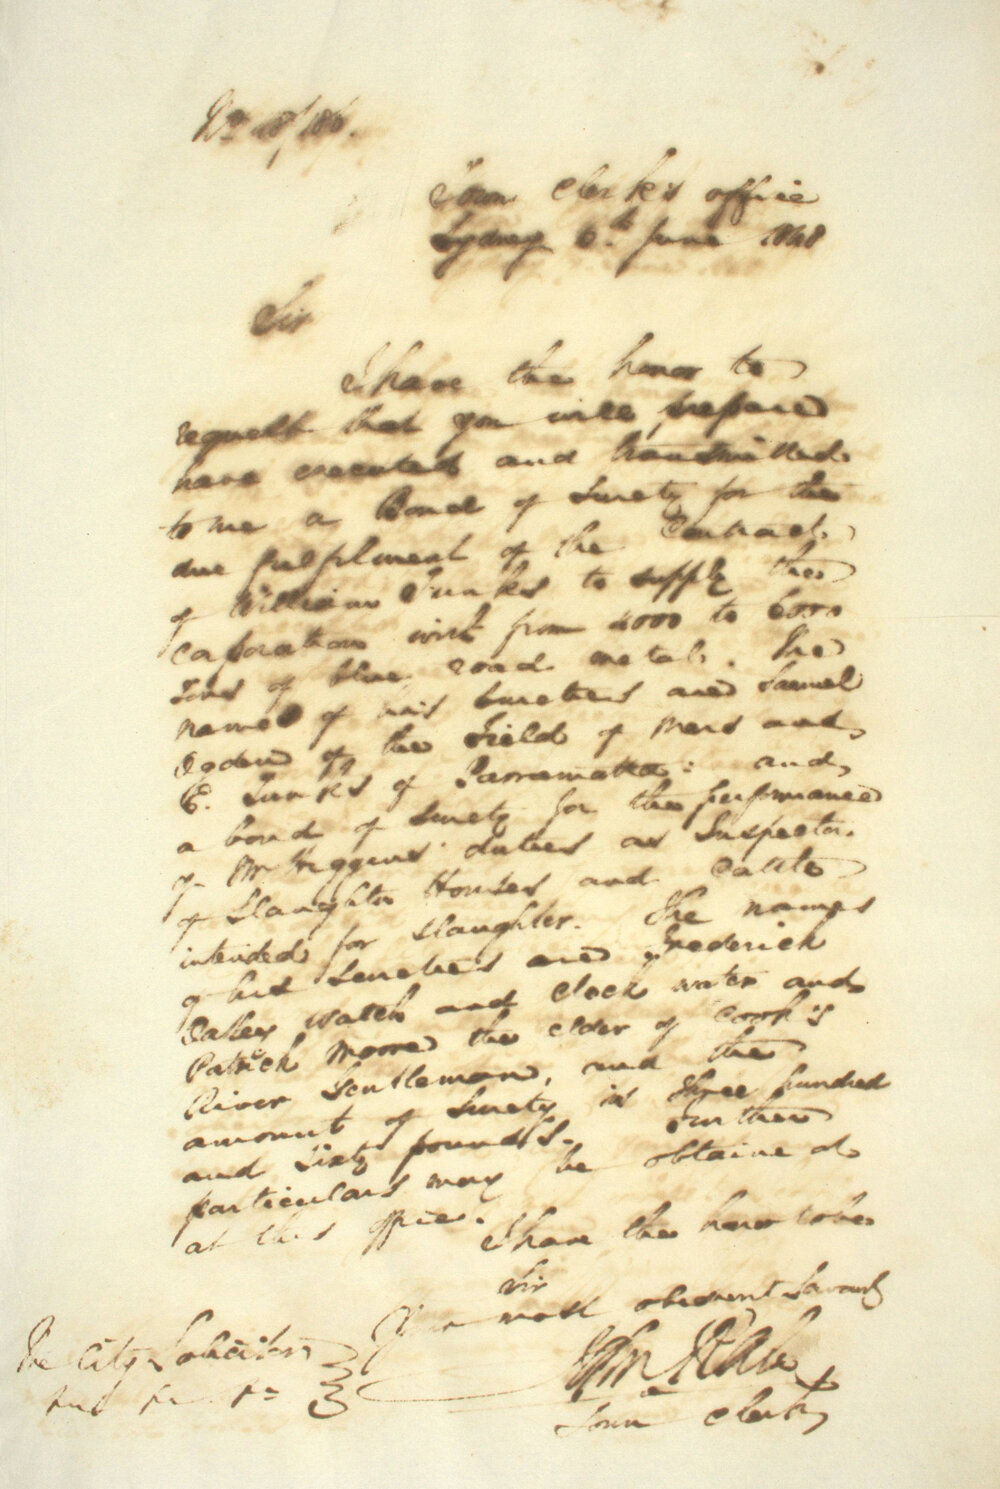 Town Clerk's office
Sydney 6th June 1848
Sir
I have the honor to
request that you will prepare
have executed and transmitted
to me a Bond of Surety for the
due fulfilment of the Contract
of William Tunks to supply the
Corporation with from 4000 to 6000
Tons of blue road metal. The
names of his Sureties are Samuel
Ogden of the Field of Mars and
E. Tunks of Parramatta: and
a bond of Surety for the performance
of Mr Higgins' duties as Inspector
of Slaughter Houses and Cattle
intended for slaughter. The names
of his Sureties are Frederick
Oatley watch and clock maker and
Patrick Moore the elder of Cook's
River Gentleman, and the
amount of Surety is three hundred
and sixty pounds. Further
particulars may be obtained
at this office.
I have the honor to be
Sir
Your most obedient Servant
Town Clerk
The City Solicitor